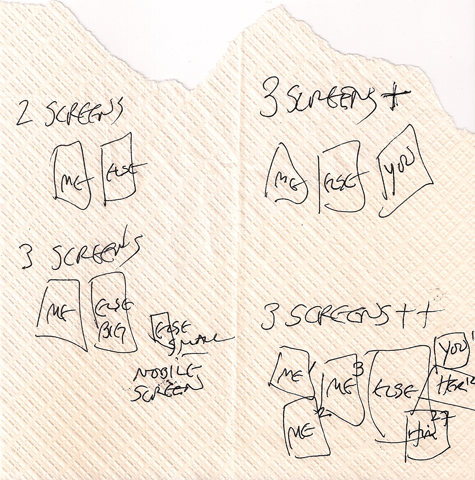 2 SCREENS
ME ELSE
3 SCREENS
ME ELSE BIG ELSE SMALL
MOBILE SCREEN
3 SCREENS+
ME ELSE YOU
3 SCREENS++
ME1 ME3 ELSE YOU1
HER12
ME2
HIM27